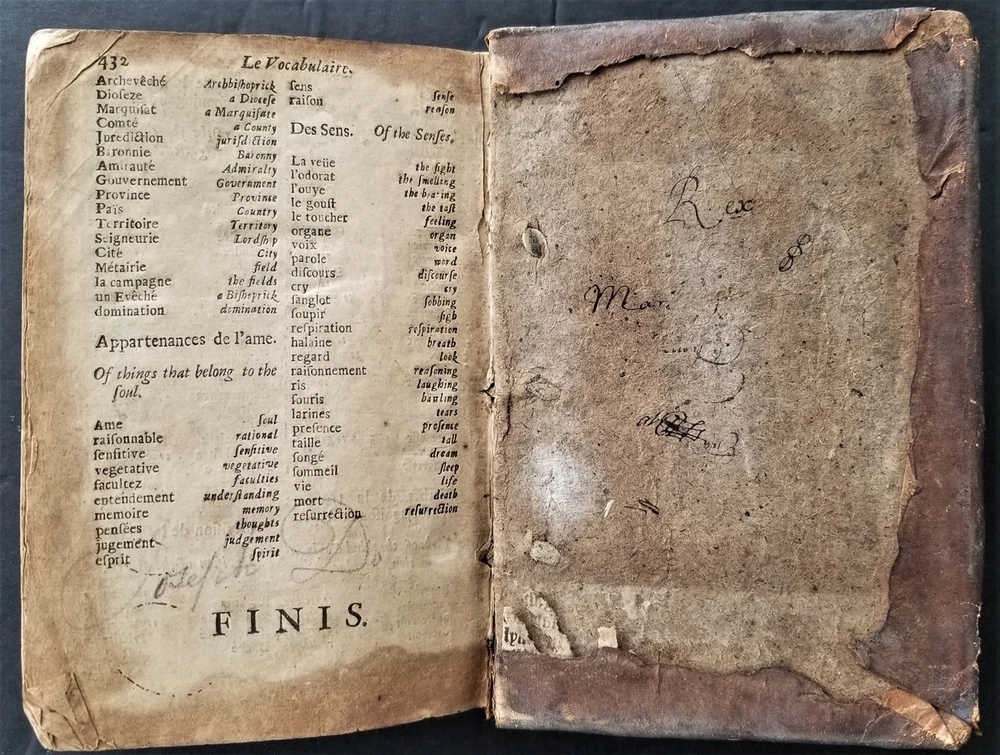 432 Le Vocabulaire.
Archevêché Archbiſhoprick
Dioſeze a Dioceſe
Marquiſat a Marquiſate
Comté a County
Jurediction jurisdiction
Baronnie Baronny
Amirauté Admiralty
Gouvernement Government
Province Province
Païs Country
Territoire Territory
Seigneurie Lordſhip
Cité City
Métairie field
la campagne the fields
un Evêché a Biſhoprick
domination domination
Appartenances de l'ame.
Of things that belong to the
ſoul.
Ame ſoul
raiſonnable rational
ſenſitive ſenſitive
vegetative vegetative
facultez faculties
entendement underſtanding
memoire memory
pensées thoughts
jugement judgement
eſprit ſpirit
ſens ſenſe
raiſon reaſon
Des Sens. Of the Senſes.
La veüe the ſight
l'odorat the ſmelling
l'ouye the hearing
le gouſt the taſt
le toucher feeling
organe organ
voix voice
parole word
diſcours diſcourſe
cry cry
ſanglot ſobbing
ſoupir ſigh
reſpiration reſpiration
halaine breath
regard look
raiſonnement reaſoning
ris laughing
ſouris bawling
larines tears
preſence preſence
taille tall
ſongé dream
ſommeil ſleep
vie life
mort death
reſurrection reſurrection
Joseph
FINIS.
Rex
&